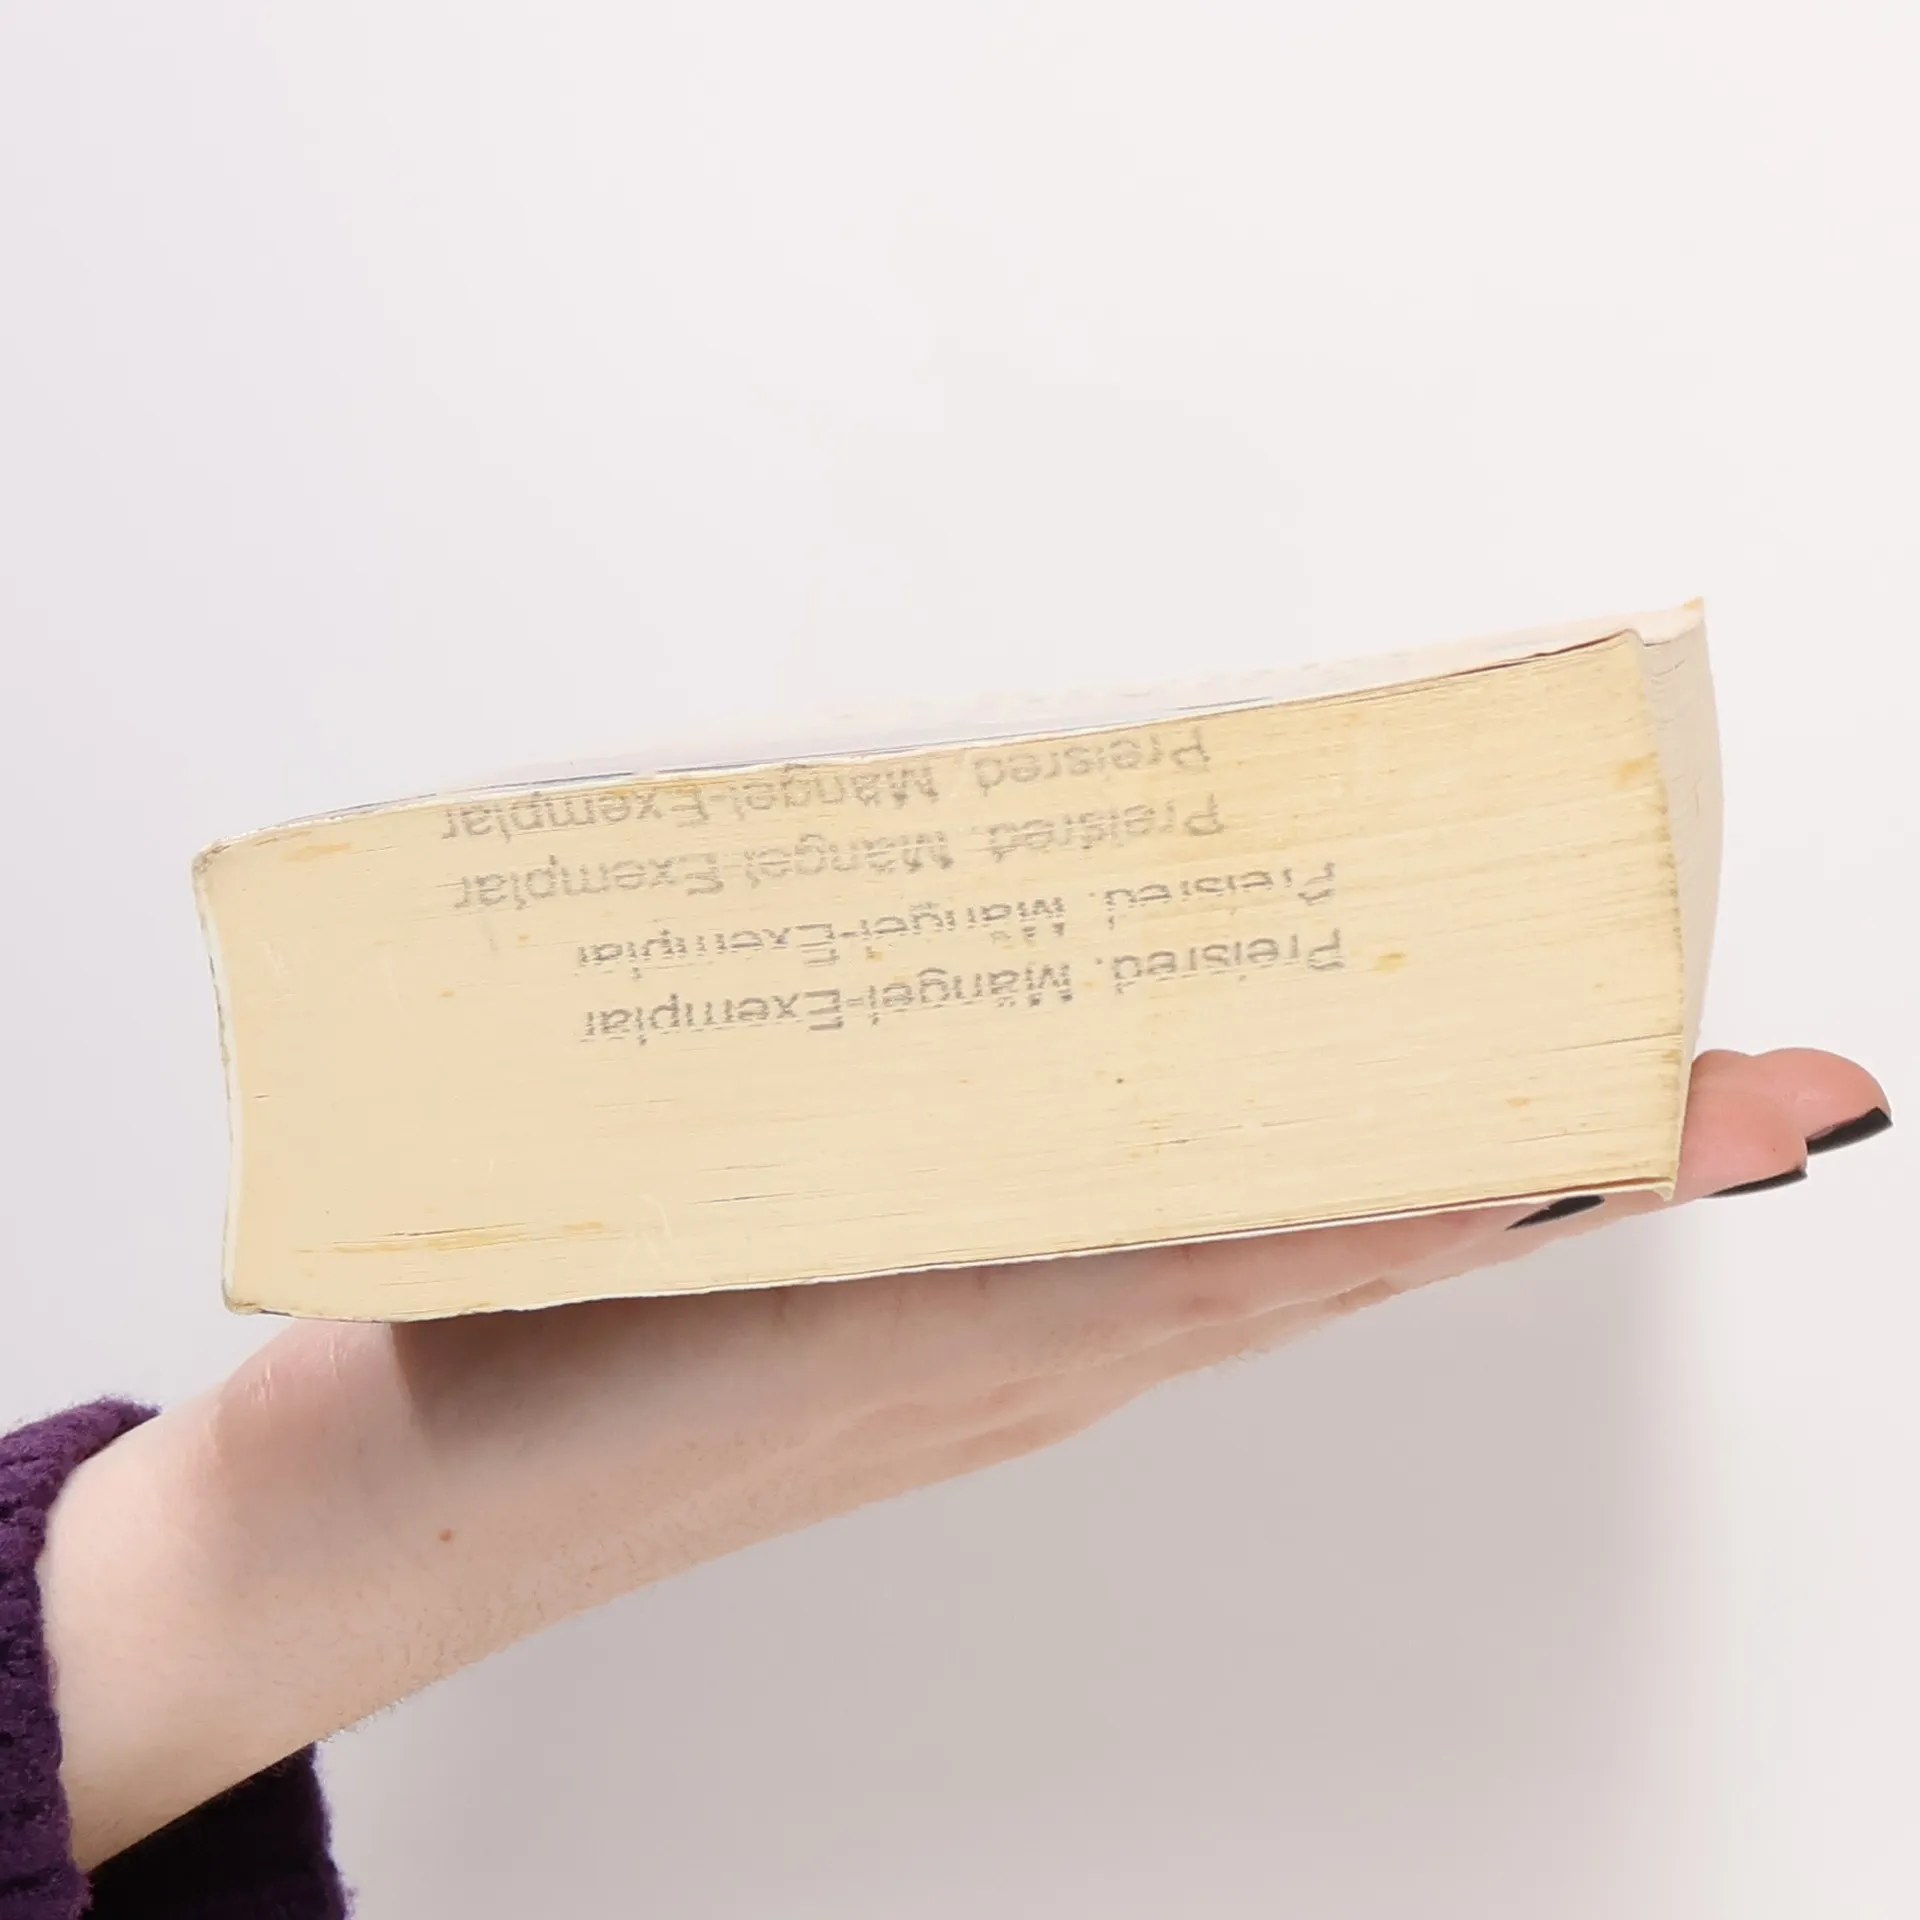 Preisred. Mängel-Exemplar
Preisred. Mängel-Exemplar
Preisred. Mängel-Exemplar
Preisred. Mängel-Exemplar